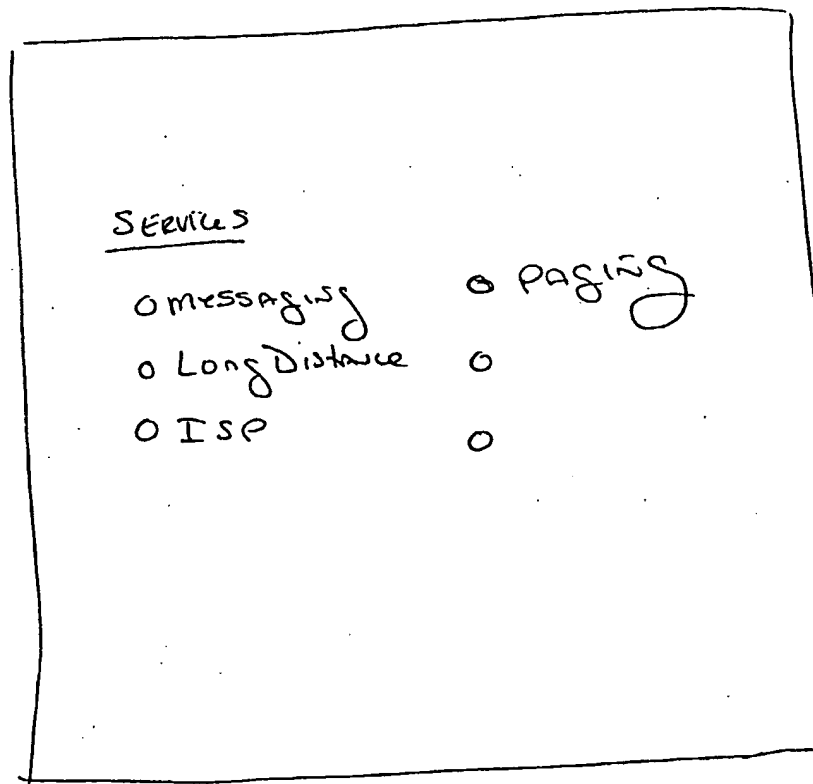 SERVICES
O MESSAGING
O Long Distance
O ISP
O PAGING
O
O